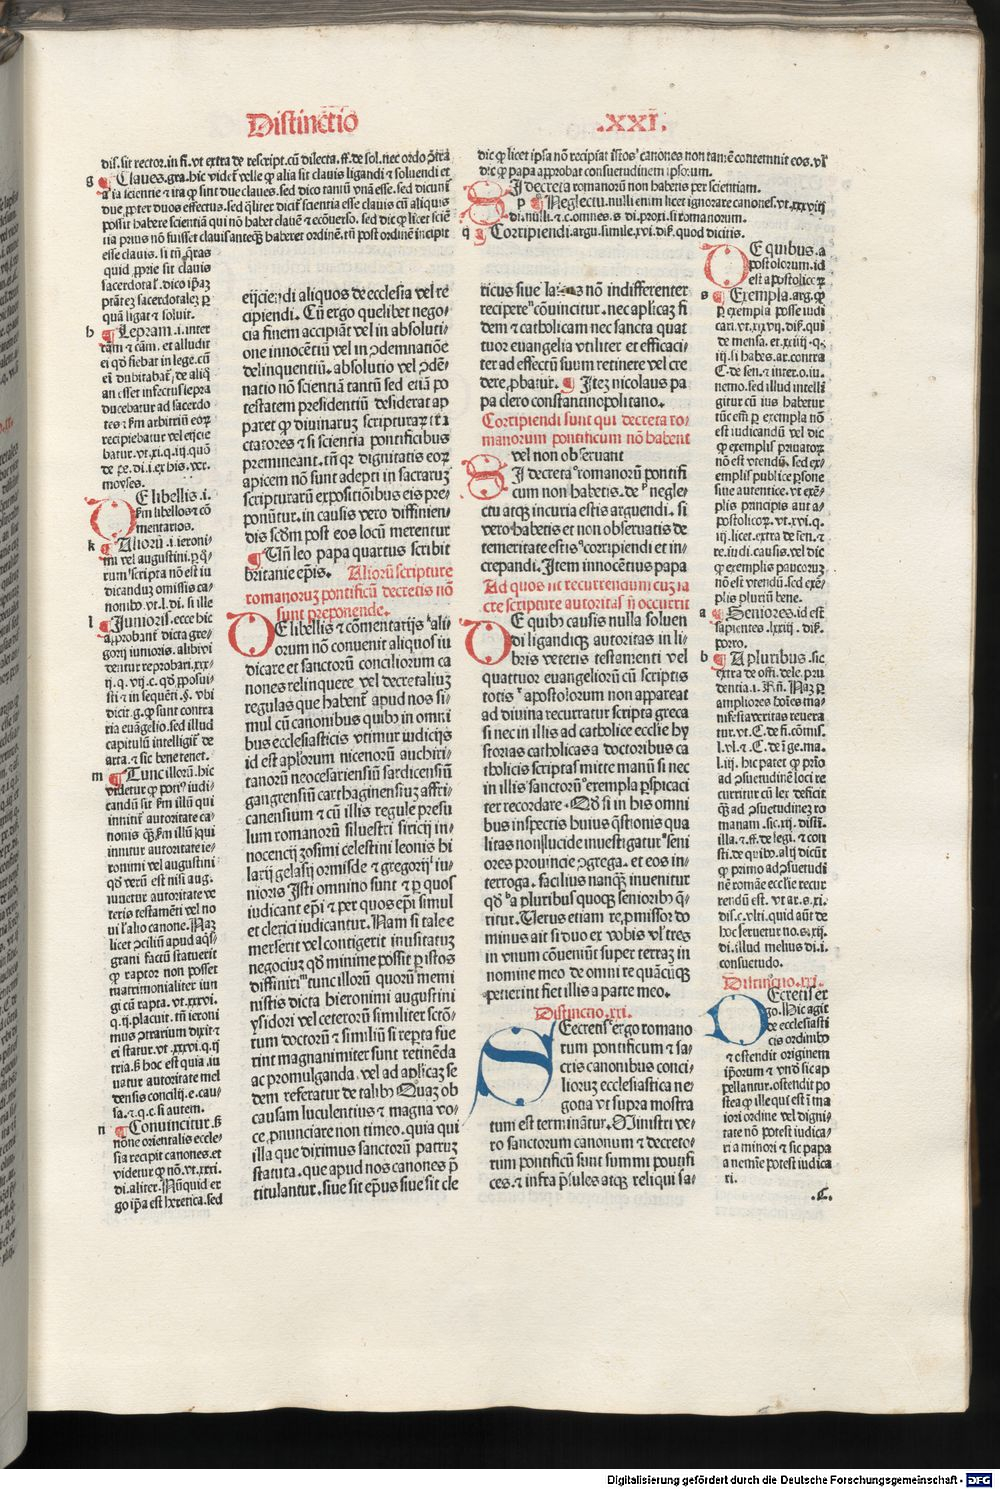 Distinctio
.XXI.
dis. sit rector. in fi. vt extra de rescript. cū dilecta. ff. de sol. nec ordo
g ¶ Claues. gra. hic videt velle ꝙ alia sit clauis ligandi ⁊ soluendi et
possit habere scientiā qui nō habet clauē ⁊ ecōuerso. sed dic ꝙ licet sciē
tia prius nō fuisset clauis
esse clauis. si tn̄
quid proprie sit clauis
sacerdotal. dico ipaꝫ
quā ligat ⁊ soluit.
h ¶ Lepram .i. inter
ei qd̄ fiebat in lege. cū
an esset infectus lepra
ducebatur ad sacerdo
recipiebatur vel eijcie
batur. vt .xi. q. iij. quō
de pe. di. i. ex his. ver.
moyses.
DE libellis .i.
km̄ libellos ⁊ cō
mentarios.
k ¶ Aliorū .i. ieroni-
mi vel augustini.
rum scripta nō est iu
dicandum omissis ca-
nonib. vt .l. di. si ille
l ¶ Junioris. ecce hic
approbant dicta gre-
gorij iunioris. alibi
dentur reprobari. xxx-
dicit g. ꝙ sunt contra
ria euāgelio. sed illud
capitulū intelligit de
arta. ⁊ sic bene tenet.
m ¶ Tunc illorū. hic
candū sit km̄ illū qui
innitit autoritate ca-
innitur autoritate ie-
ronimi vel augustini
qd̄ verū est nisi aug.
iuuetur autoritate ve
teris testamēti vel no
ui
licet
grani factū statuerit
ꝙ raptor non posset
matrimonialiter iun
gi cū rapta. vt .xxxvi.
q. ij. placuit. tn̄ ieroni
mus ꝯtrarium dixit ⁊
ei statur. vt .xxxvi. q. ij
tria. s hoc est quia. iu
uatur autoritate mel
densis concilij. e. cau-
sa. ⁊ .q. c. si autem.
n ¶ Conuincitur.
none orientalis eccle-
sia recipit canones. et
videtur ꝙ nō. vt .xxi.
di. aliter. Nūquid er
go ipa est heretica. sed
eijciendi aliquos de ecclesia vel re
cipiendi. Cū ergo quelibet nego-
cia finem accipiāt vel in absoluti-
one innocētiū vel in ꝯdemnatiōe
delinquentiū. absolutio vel ꝯdē-
natio nō scientiā tantū sed etiā po
testatem presidentiū desiderat ap
paret ꝙ diuinaruꝫ scripturaꝝ tra
ctatores ⁊ si scientia pontificibus
premineant. tn̄ qꝛ dignitatis eoꝝ
apicem nō sunt adepti in sacraruꝫ
scripturarū expositiōibus eis pre-
ponūtur. in causis vero diffinien-
dis scdm̄ post eos locū merentur
¶ Un̄ leo papa quartus scribit
britanie ep̄is. Aliorū scripture
romanoruꝫ pontificū decretis nō
sunt preponende.
DE libellis ⁊ cōmentarijs ali-
orum nō conuenit aliquos iu
dicare et sanctorū conciliorum ca
nones relinquere. vel decretaliuꝫ
regulas que habent apud nos si-
mul cū canonibus quibꝰ in omni
bus ecclesiasticis vtimur iudicijs
id est aplorum nicenorū anchiri-
tanorū neocesariensiū sardicensiū
gangrensiū carthaginensiuꝫ affri-
canensium ⁊ cū illis regule presu
lum romanorū siluestri siricij in-
nocencij zosimi celestini leonis hi
larij gelasij ormisde ⁊ gregorij iu-
nioris Isti omnino sunt ⁊ per quos
iudicant ep̄i ⁊ per quos ep̄i simul
et clerici iudicantur. Nam si tale e
merserit vel contigerit inusitatuꝫ
negociuꝫ qd̄ minime possit per istos
diffiniri tunc illorū quorū memi
nistis dicta hieronimi augustini
ysidori vel ceterorū similiter sctō-
tum doctorū ⁊ similiū si repta fue
rint magnanimiter sunt retinēda
ac promulganda. vel ad aplicaꝫ se
dem referatur de talibꝰ Quaꝫ ob
causam luculentius ⁊ magna vo-
ce pnunciare non timeo. quia qui
illa que diximus sanctorū patruꝫ
statuta. que apud nos canones p̄
titulantur. siue sit ep̄us siue sit cle
dic ꝙ licet ipsa nō recipiat istos canones non tamē contemnit eos. vl
dic ꝙ papa approbat consuetudinem ipsorum.
SI decreta romanorū non habetis per scientiam.
p ¶ Neglectu. nulli enim licet ignorare canones. vt .xxxviij
di. nulli. ⁊ .c. omnes. ⁊ di. pri. si romanorum.
q ¶ Corripiendi. argu. simile. xvi. dis. quod dicitis.
ricus siue non indifferenter
recipere conuincitur. nec aplicaꝫ fi
dem ⁊ catholicam nec sancta quat
tuor euangelia vtiliter et efficaci-
ter ad effectū suum retinere vel cre
dere, pbatur. ¶ Iteꝫ nicolaus pa
pa clero constantinopolitano.
Corripiendi sunt qui decreta ro-
manorum pontificum nō habent
vel non obseruant
SI decreta romanorū pontifi
cum non habetis. de neglectu
ctu atqꝫ incuria estis arguendi. si
vero habetis et non obseruatis de
temeritate estis corripiendi et in-
crepandi. Item innocētius papa
Ad quos sit recurrendum cuꝫ sa
cre scripture autoritas n̄ occurrit
DE quibꝰ causis nulla soluen
di ligandiqꝫ autoritas in li-
bris veteris testamenti vel
quattuor euangeliorū cū scriptis
totis apostolorum non appareat
ad diuina recurratur scripta greca
si nec in illis ad catholice ecclie hy
storias catholicas a doctoribus ca
tholicis scriptas mitte manū si nec
in illis sanctorū exempla pspicaci
ter recordare. Qd̄ si in his omni
bus inspectis huius qstionis qua
litas non lucide inuestigatur seni
ores prouincie ꝯgrega. et eos in-
terroga. facilius nanqꝫ inuenitur
qd̄ a pluribus quoqꝫ senioribꝰ q̄-
ritur. Uerus etiam repromissor do
minus ait si duo ex vobis vl tres
in vnum cōuenint super terraꝫ in
nomine meo de omni re quācūqꝫ
petierint fiet illis a patre meo.
Distinctio .xxi.
DEcretis ergo romano
rum pontificum ⁊ sa-
cris canonibus conci-
lioruꝫ ecclesiastica ne
gotia vt supra mostra
tum est terminātur. Ministri ve-
ro sanctorum canonum ⁊ decreto-
rum pontificū sunt summi pontifi
ces. ⁊ infra p̄sules atqꝫ reliqui sa-
DE quibus. a
postolorum. id
est apostolice
s ¶ Exempla. arg. ꝙ
p exempla posse iudi
cari. vt .xxvij. dis. qui
de mensa. et .xxiiij. q.
iij. si habes. ar. contra
C. de sen. ⁊ inter. o. iu.
nemo. sed illud intelli
gitur cū ius habetur
est iudicandū vel dic
ꝙ exemplis priuatoꝝ
nō est vtendū. sed ex-
emplis publice psone
siue autentice. vt exē-
plis principis aut a-
postolicoꝝ. vt .xvi. q.
iij. licet. extra de sen. ⁊
re. iudi. causis. vel dic
ꝙ exemplis paucoruꝫ
nō est vtendū. sed exē-
plis plurīū bene.
a ¶ Seniores. id est
sapientes .lxxiij. dis.
porro.
b ¶ A pluribus. sic
extra de offi. dele. pru
ampliores hoīes ma-
nifesta veritas reuera
tur. vt .C. de fi. cōmis.
l. vl. ⁊ .C. de ī ge. ma.
l. iij. hic patet ꝙ prīo
ad ꝯsuetudinē loci re
curritur cū lex deficit
ad ꝯsuetudineꝫ ro
manam. sic .xij. disti.
illa. ⁊ .ff. de legi. ⁊ con
sti. de quibꝰ. alij dicūt
ꝙ primo ad ꝯsuetudi
nē romāe ecclie recur
rendū est. vt ar. s. xi.
dis. c. vlti. quid aūt de
hoc seruetur no. s. xij.
di. illud melius di. i.
consuetudo.
Distinctio .xxi.
DEcretis er
go. Hic agit
de ecclesiasti
cis ordinibꝰ
⁊ ostendit originem
iporum ⁊ vnd̄ sic ap
pellantur. ostendit po
stea ꝙ ille qui est ī ma
iori ordine vel digni-
tate nō potest iudica-
ri a minori ⁊ sic papa
a nemīe potest iudica
ri.
.C.
Digitalisierung gefördert durch die Deutsche Forschungsgemeinschaft - DFG